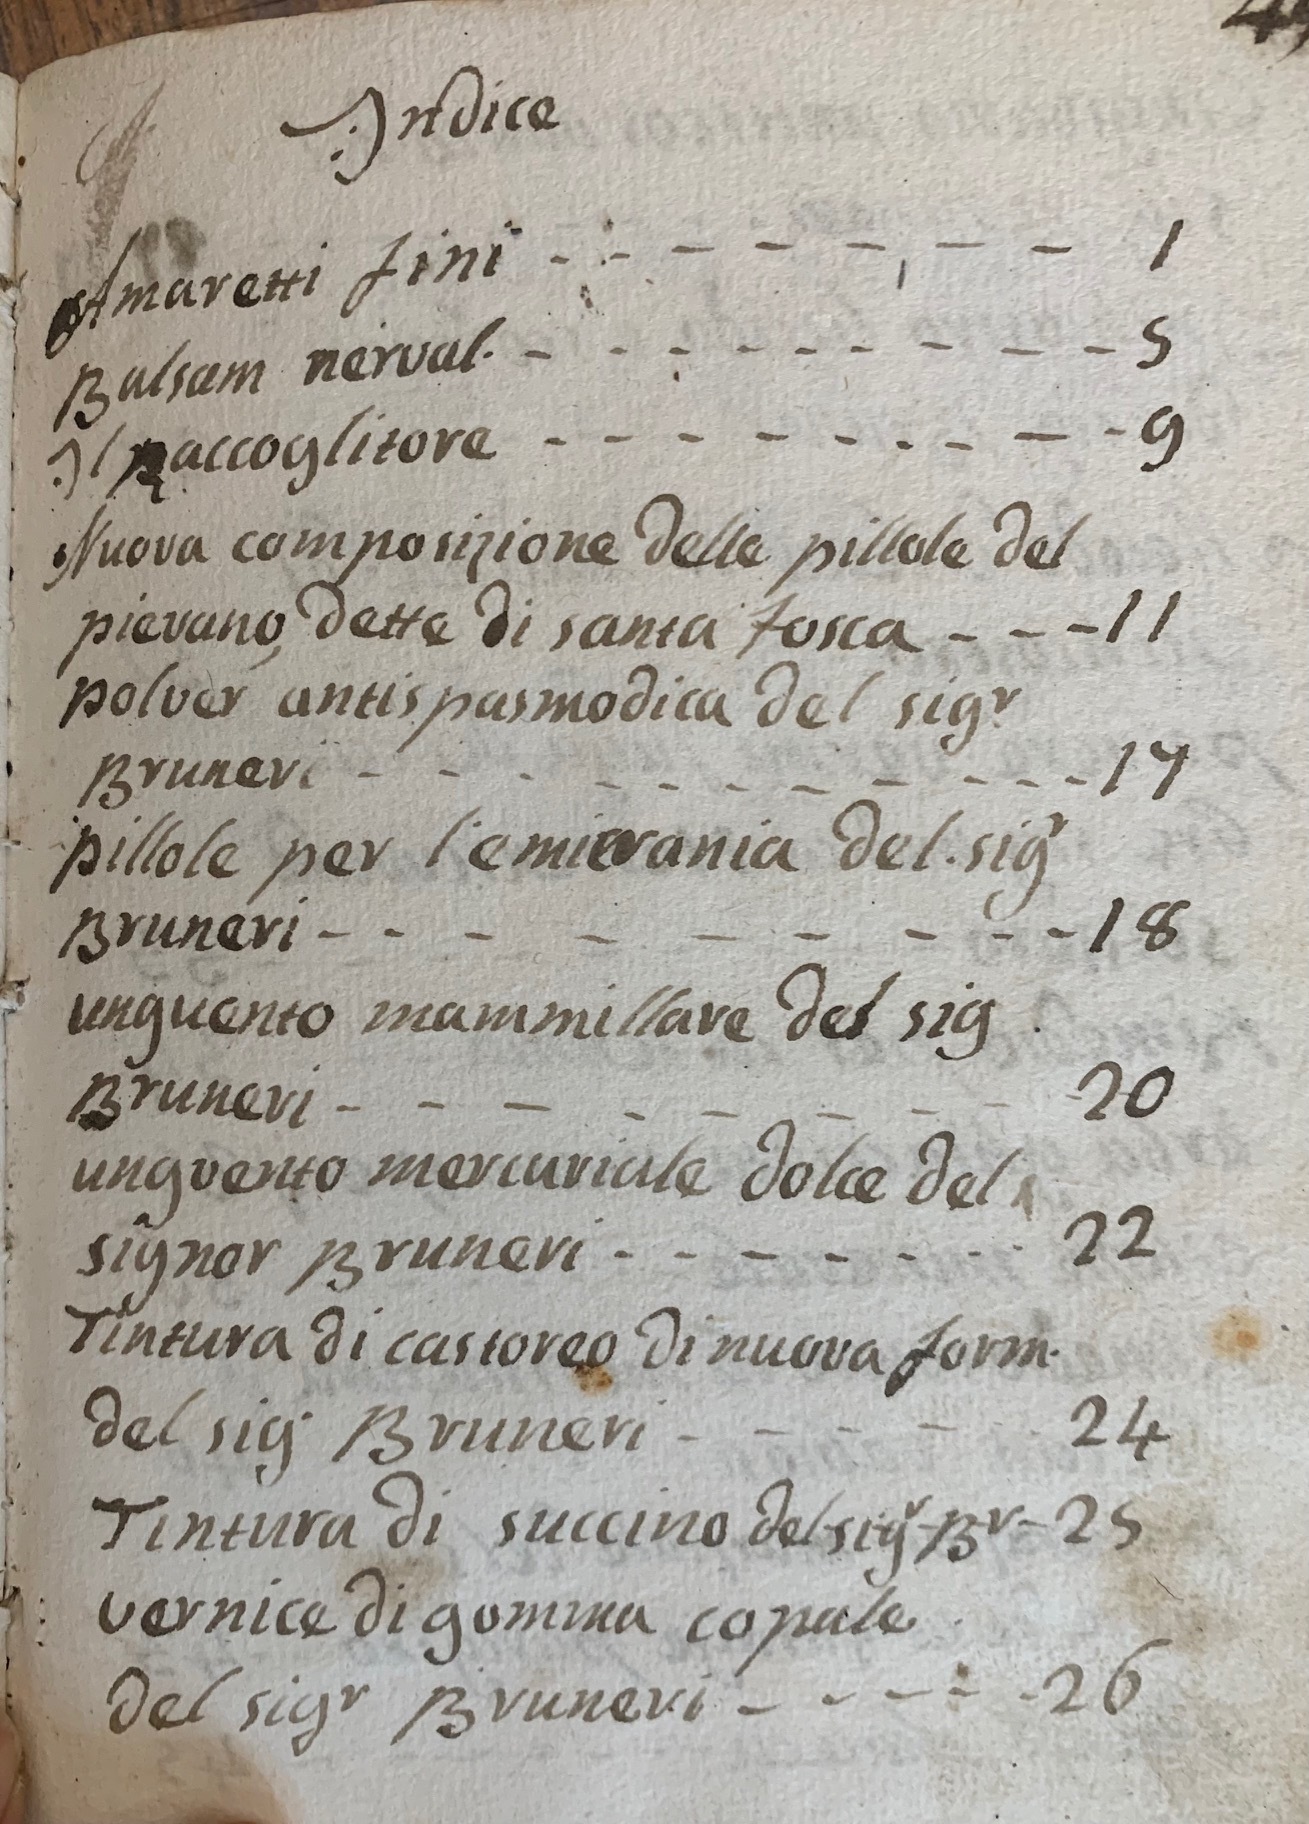 Indice
Amaretti fini - - - - - - - - 1
Balsam nerval. - - - - - - - - - - 5
Il Raccoglitore - - - - - - - - - 9
Nuova composizione delle pillole del
pievano, dette di santa fosca - - - 11
polver antispasmodica del sigr
Bruneri - - - - - - - - - - - 17
pillole per l'emicrania del. sigr
Bruneri - - - - - - - - - 18
unguento mammillare del sig
Bruneri - - - - - - - - 20
unguento mercuriale dolce del
signor Bruneri - - - - - - - 22
Tintura di castoreo di nuova form.
del sigr Bruneri - - - - - 24
Tintura di succino del sigr Br - 25
vernice di gomma copale
del sigr Bruneri - - - - - 26